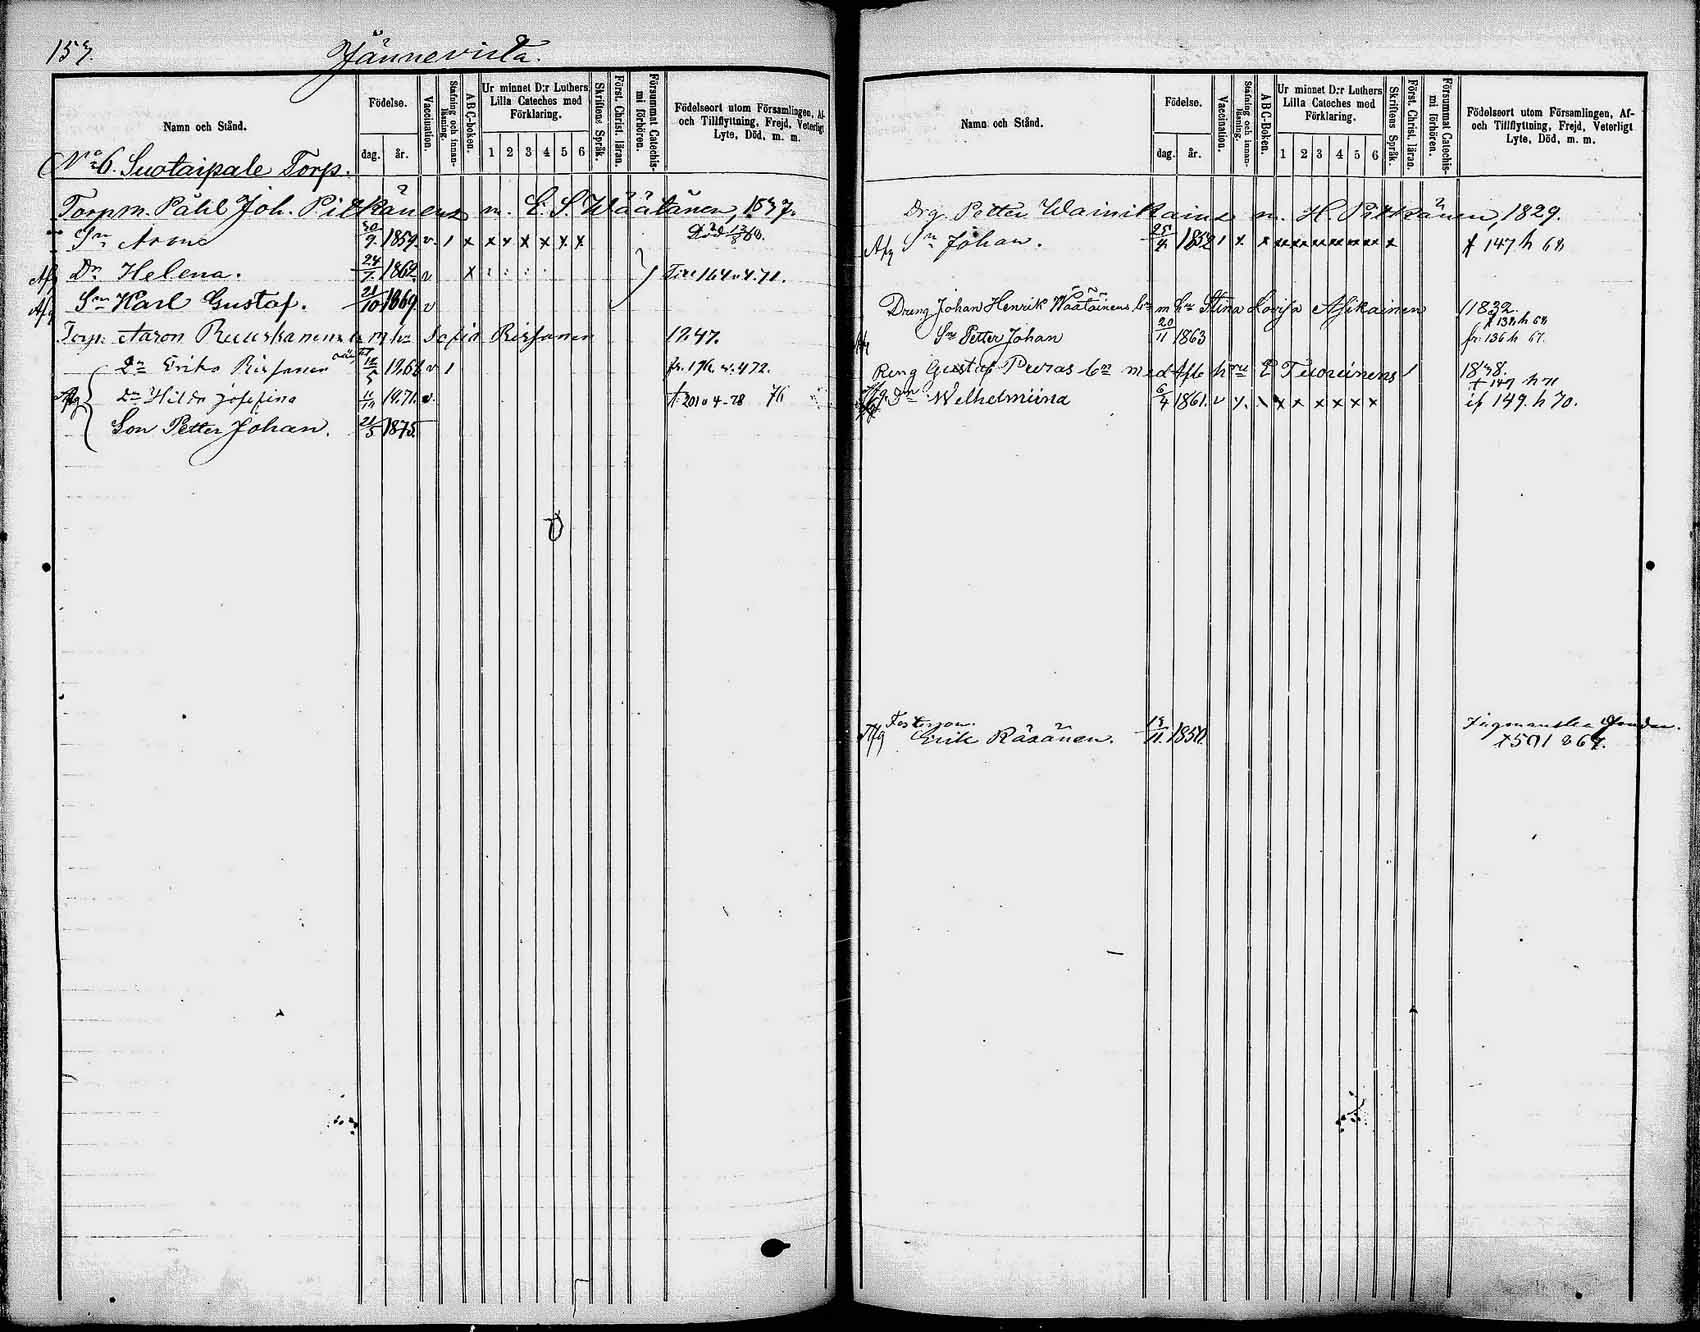 157.
Jännevirta.
Namn och Stånd.
Födelse.
dag. år.
Vaccination.
Stafning och innanläsning.
A B C-boken.
Ur minnet D:r Luthers Lilla Cateches med Förklaring.
1 2 3 4 5 6
Skriftens Språk.
Först. Christ. läran.
Försummat Catechismi förhören.
Födelseort utom Församlingen, Af- och Tillflyttning, Frejd, Veterligt Lyte, Död, m. m.
No 6. Suotaipale Torp.
Torpm. Påhl Joh. Pitkänens m. E. S. Wäätänen, 1837.
Sn 30/9 1859. v. 1 x x x x x x x Död 68.
Afg Dr Helena. 24/7 1862 v x 164 v. 4. 71.
Afg Sn Karl Gustaf. 21/10 1869. v
Torp. Aaron Ruuskanens m hu Sofia Rissanen 1847.
Dn Erika Rissanen 1862 v 1 fr. 176. v. 472.
Afg Dn Hilda Josefina 1871. v. 201 v 4-78
Son Petter Johan. 21/3 1875.
Namn och Stånd.
Födelse.
dag. år.
Vaccination.
Stafning och innanläsning.
A B C-boken.
Ur minnet D:r Luthers Lilla Cateches med Förklaring.
1 2 3 4 5 6
Skriftens Språk.
Först. Christ. läran.
Försummat Catechismi förhören.
Födelseort utom Församlingen, Af- och Tillflyttning, Frejd, Veterligt Lyte, Död, m. m.
Drg. Petter Wainikains m. H. Pitkänen, 1829.
Afg Sn Johan. 25/4 1852 1 x x x x x x x x x 147 h 68
Dreng Johan Henrik Wäätäinens bn m hu Stina Lovisa Asikainen 1832.
138 h 68
Afg Sn Petter Johan 20/11 1863 fr. 136 h 67.
Reng Gustaf Puras bn med Afl. hru E Tuoveinens 1838.
147 h 71
Afg. Dn Wilhelmiina 6/4 1861. v x. x x x x x x 149. h 70.
Fosterson.
Afg Erik Räsänen. 18/11. 1850.
501 867.